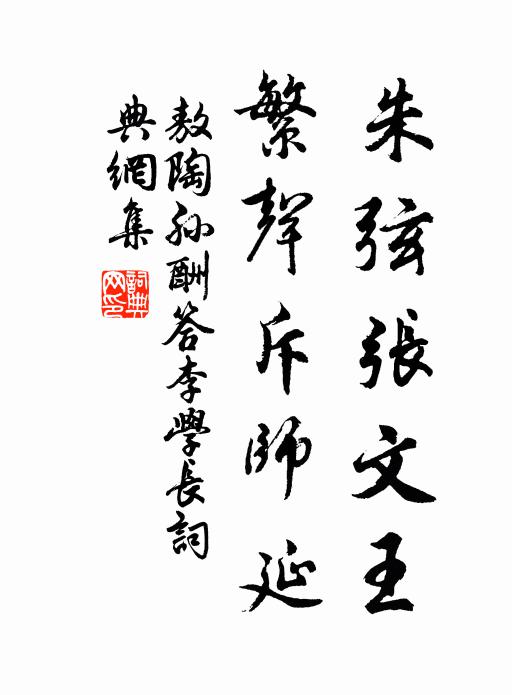 朱弦張文王
繁聲斥師延
敖陶孫酬答李學長詞
典網集
詞典網印